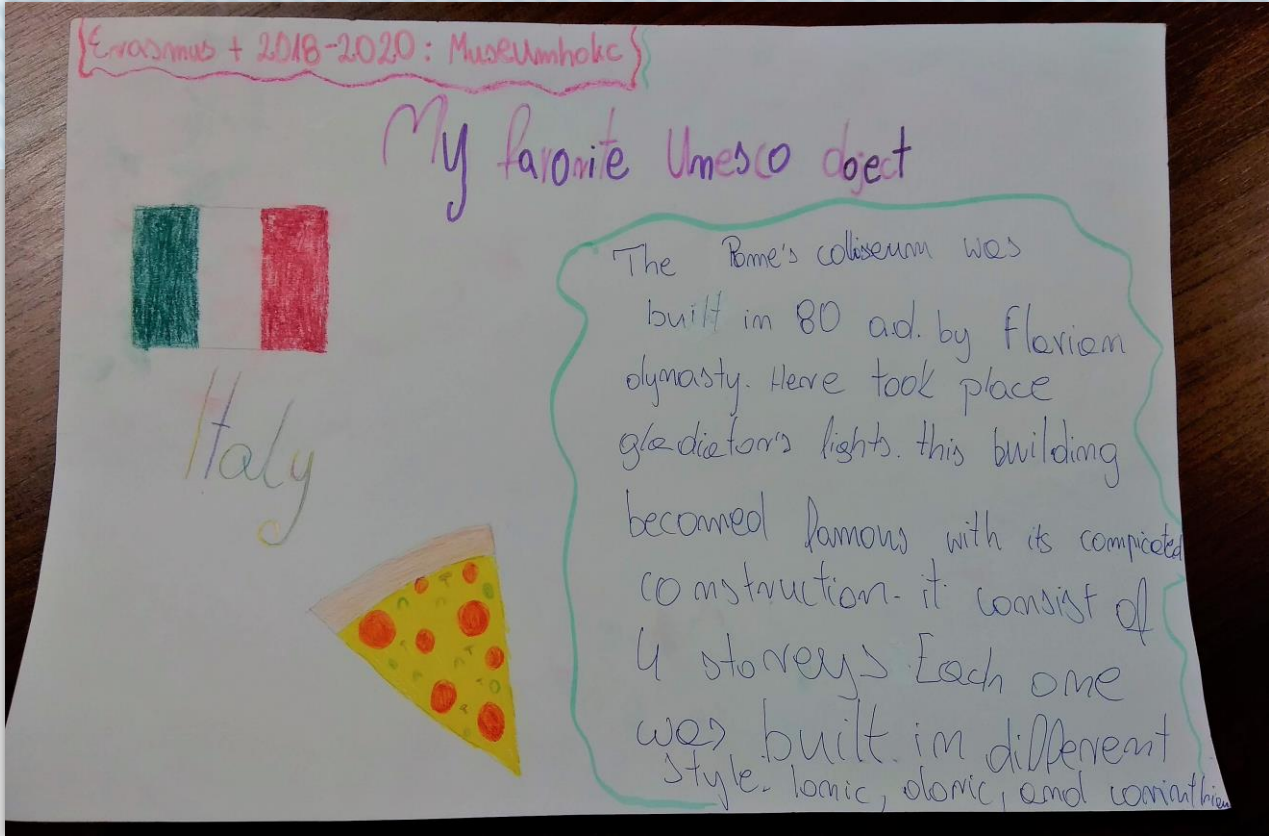 Erasmus + 2018-2020: Museumholic
My favorite Unesco object
Italy
The Rome's coliseum was
built in 80 a.d. by Flavian
dynasty. Here took place
gladiator's fights. this building
becomed famous with its compicated
construction. it consist of
4 storeys. Each one
was built in different
style. Ionic, doric, and corinthian